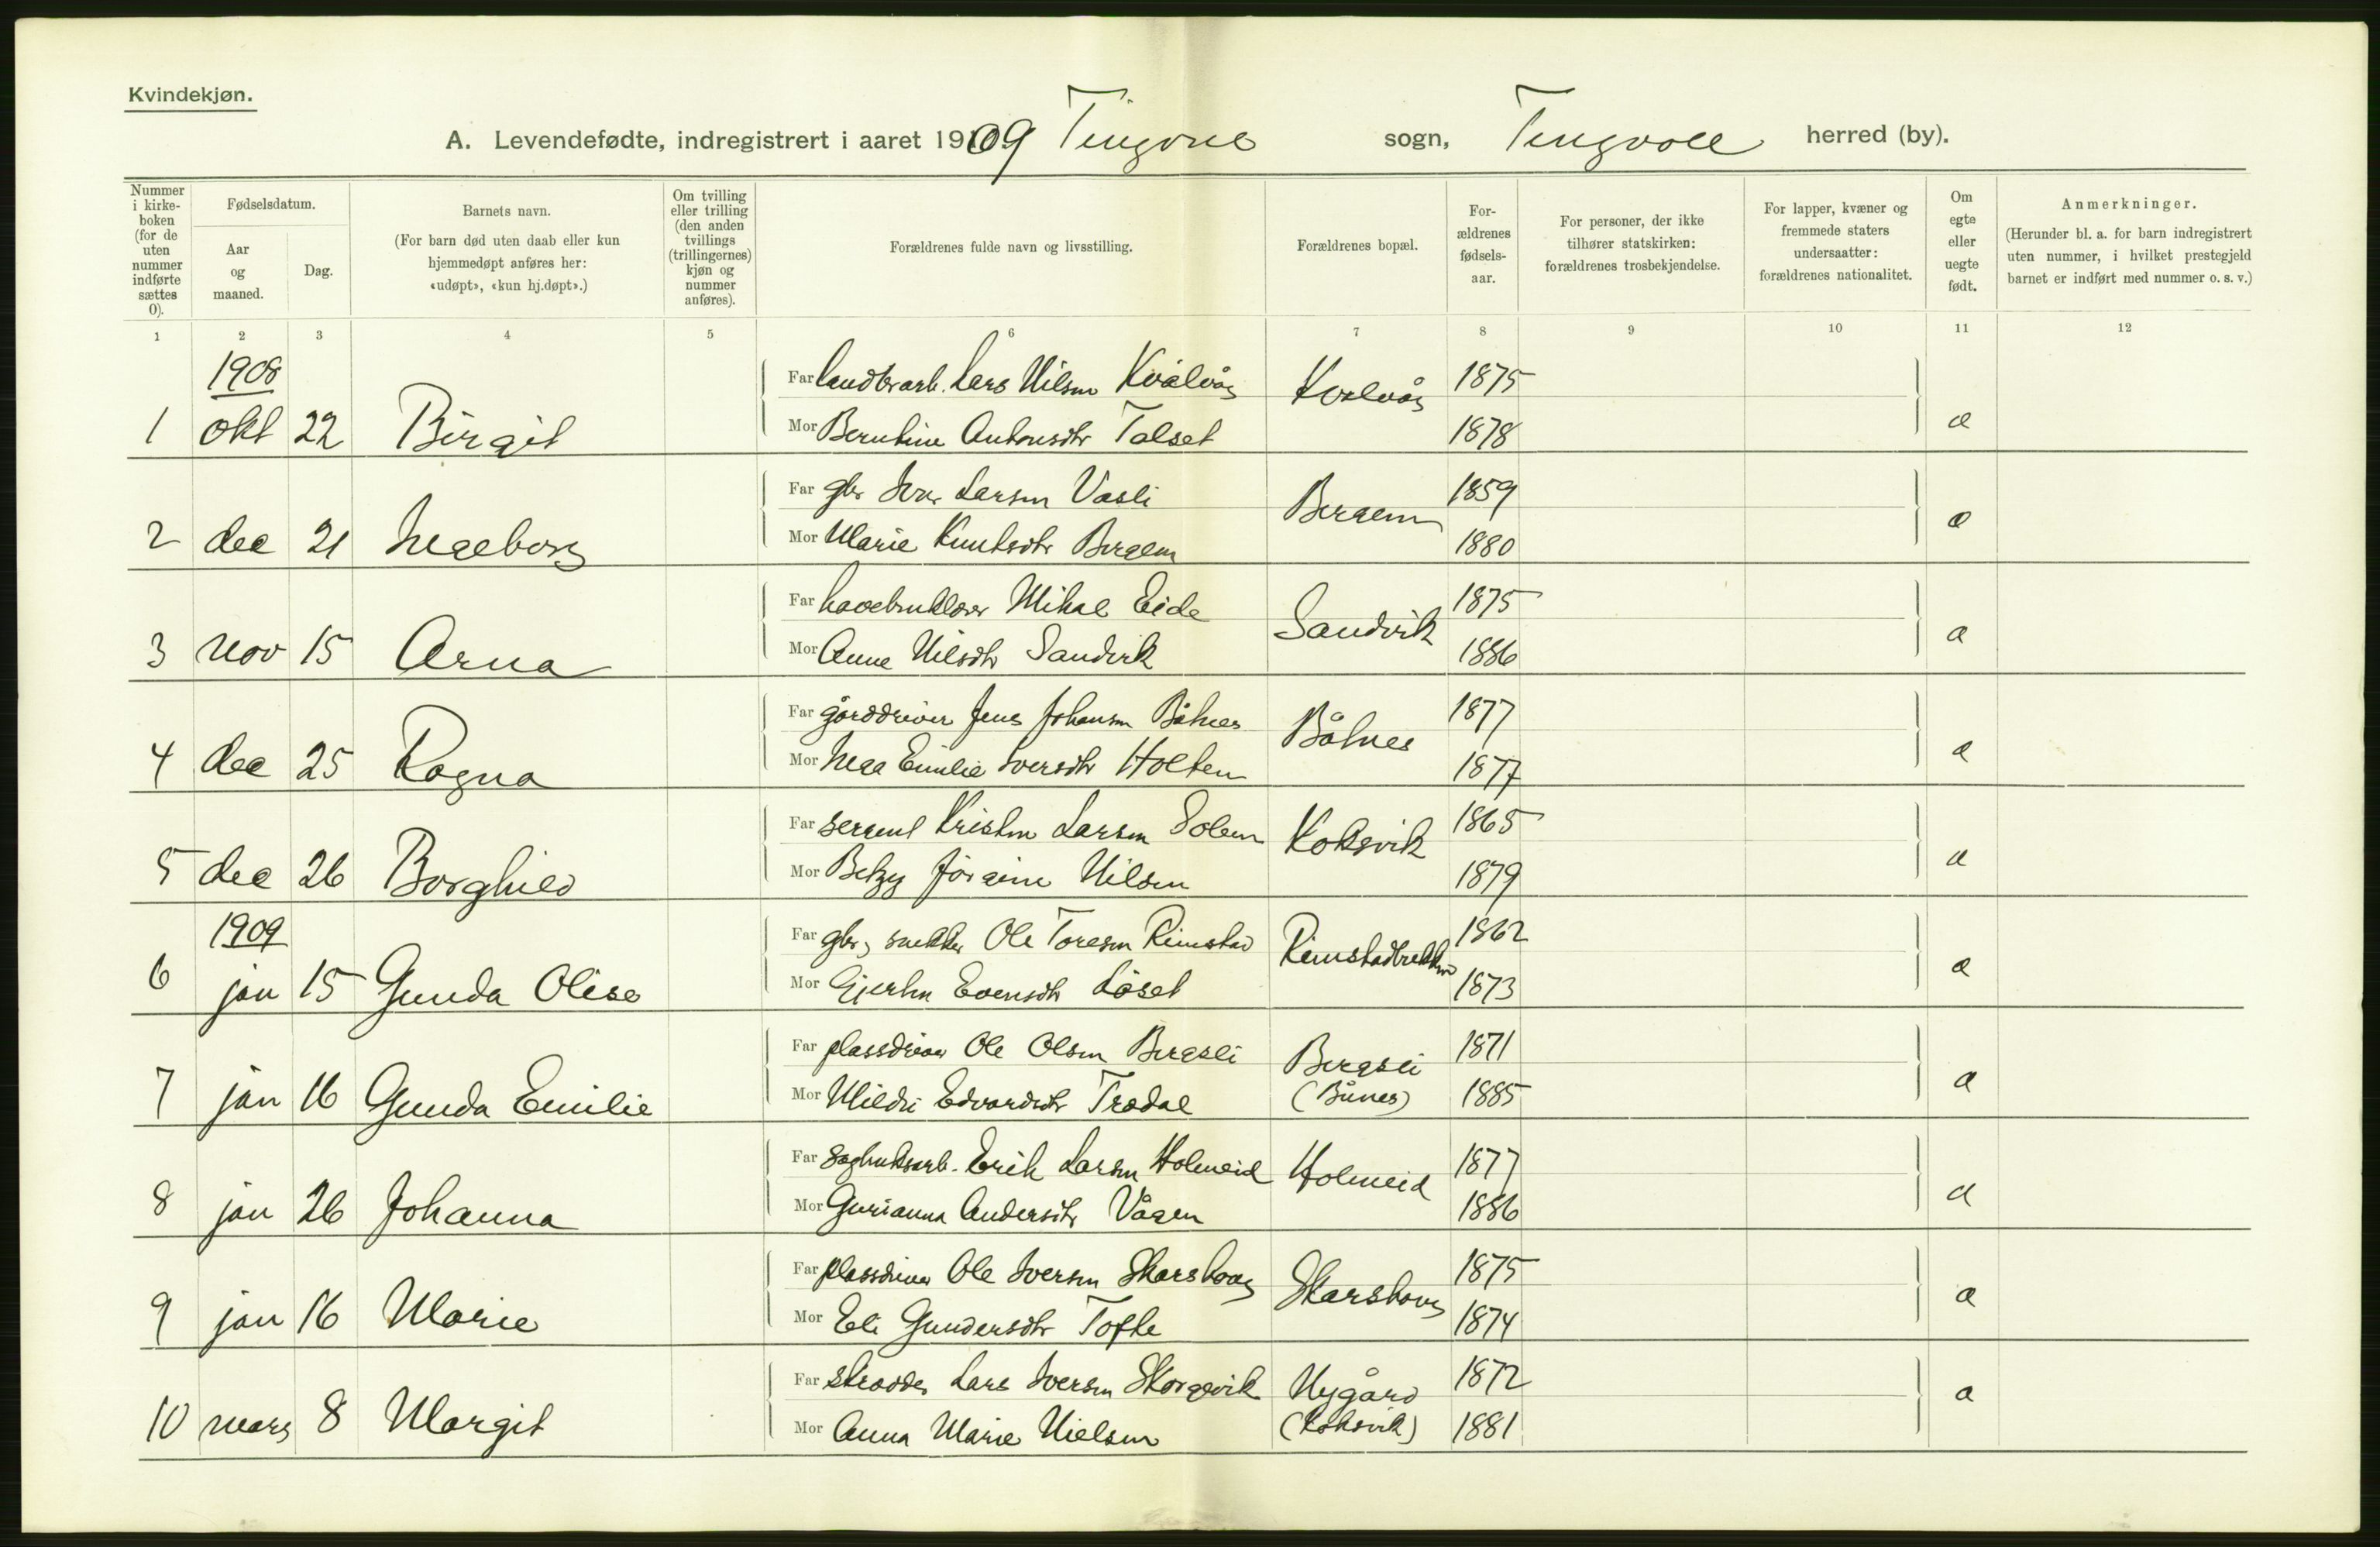 Kvindekjøn.
A. Levendefødte, indregistrert i aaret 1909 Tingvoll sogn, Tingvoll herred (by).
Nummer i kirke-boken (for de uten nummer indførte sættes 0).
Fødselsdatum.
Aar og maaned.
Dag.
Barnets navn.
(For barn død uten daab eller kun hjemmedøpt anføres her: «udøpt», «kun hj.døpt».)
Om tvilling eller trilling (den anden tvillings (trillingernes) kjøn og nummer anføres).
Forældrenes fulde navn og livsstilling.
Forældrenes bopæl.
For-ældrenes fødsels-aar.
For personer, der ikke tilhører statskirken: forældrenes trosbekjendelse.
For lapper, kvæner og fremmede staters undersaatter: forældrenes nationalitet.
Om egte eller uegte født.
Anmerkninger.
(Herunder bl. a. for barn indregistrert uten nummer, i hvilket prestegjeld barnet er indført med nummer o. s. v.)
1 2 3 4 5 6 7 8 9 10 11 12
1908
Far landbrarb. Lars Nilsen Kvalvåg Kvalvåg 1875
1 okt 22 Birgit Mor Berntine Antonsdtr Talset 1878 e
Far gbr Ivar Larsen Vasli Bergem 1859
2 dec 21 Ingeborg Mor Marie Knutsdtr Bergem 1880 e
Far havebruklærer Mikal Eide Sandvik 1875
3 nov 15 Arna Mor Anne Nilsdtr Sandvik 1886 e
Far gårddriver Jens Johansen Båhnes Båhnes 1877
4 dec 25 Ragna Mor Inga Emilie Iversdtr Holten 1877 e
Far sergent Kristen Larsen Solem Koksvik 1865
5 dec 26 Borghild Mor Betzy Jørgine Nilsen 1879 e
1909
Far gbr, snekker Ole Toresen Rimstad Rimstadbrekken 1862
6 jan 15 Gunda Olise Mor Gjertin Evensdtr Løset 1873 e
Far plassdriver Ole Olsen Bergsli Bergsli 1871
7 jan 16 Gunda Emilie Mor Mildri Edvardsdtr Trædal (Bünes) 1885 e
Far sagbruksarb. Erik Larsen Holmeid Holmeid 1877
8 jan 26 Johanna Mor Gurianna Andersdtr Vågen 1886 e
Far plassdriver Ole Iversen Skarshaug Skarshaug 1875
9 jan 16 Marie Mor Eli Gundersdtr Tofte 1874 e
Far skrædder Lars Iversen Skorgevik Nygård 1872
10 mars 8 Margit Mor Anna Marie Nielsen (Koksvik) 1881 e